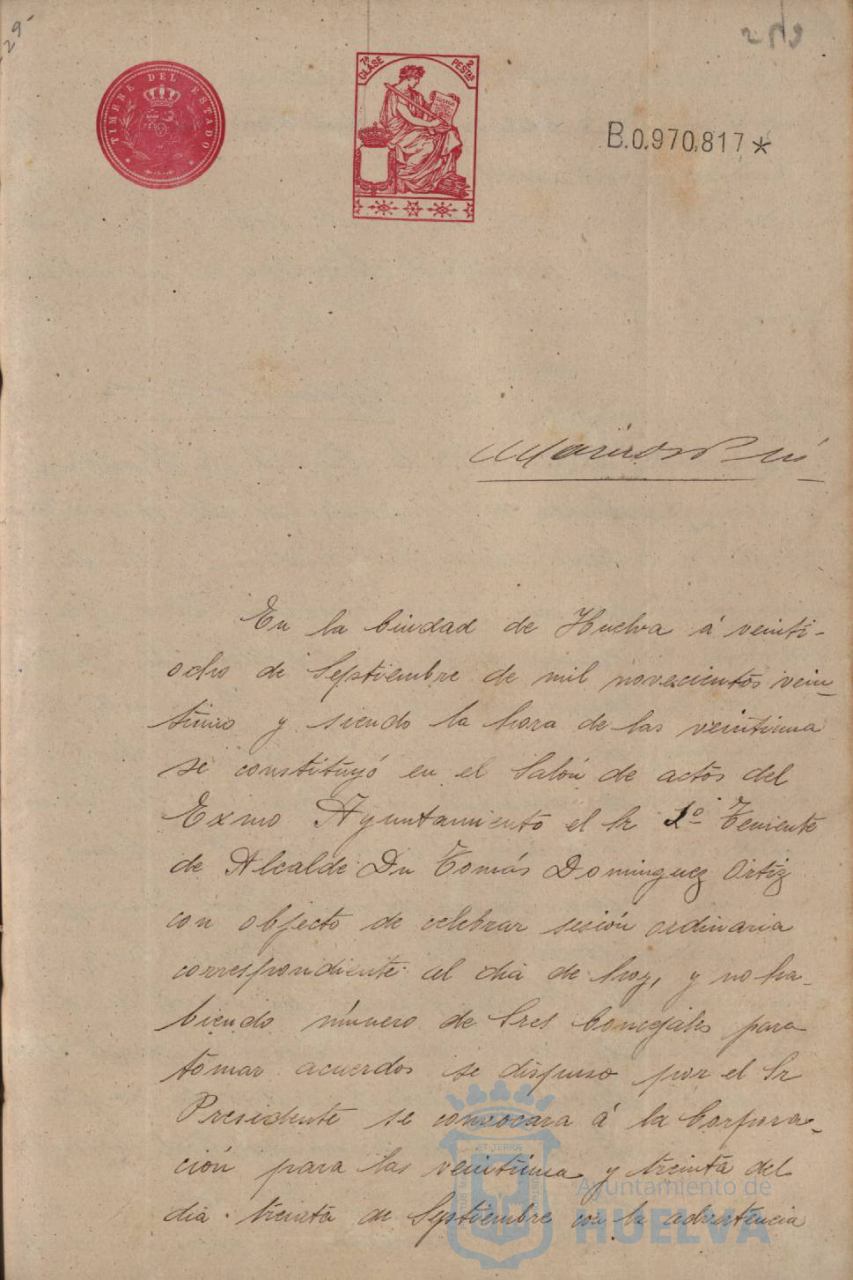 259
TIMBRE DEL ESTADO
7ª CLASE
2 PESTAS
B.0,970,817*
En la Ciudad de Huelva á veinti-
ocho de Septiembre de mil novecientos vein-
tiuno y siendo la hora de las veintiuna
se constituyó en el Salón de actos del
Exmo Ayuntamiento el Sr 2º Teniente
de Alcalde Dn Tomás Dominguez Ortiz
con objecto de celebrar sesión ordinaria
correspondiente al dia de hoy, y no ha-
biendo número de Sres Concejales para
tomar acuerdos se dispuso por el Sr
Presidente se convocara á la Corpora-
ción para las veintiuna y treinta del
dia treinta de Septiembre con la advertencia
Ayuntamiento de
HUELVA